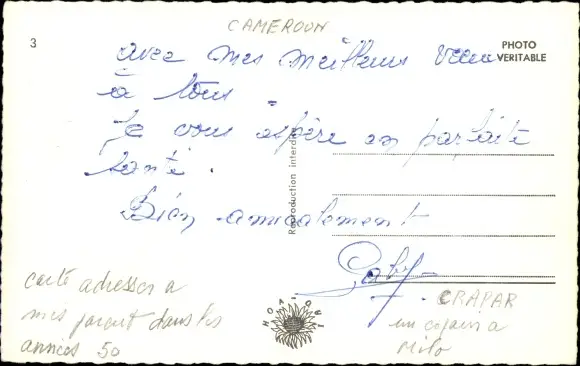 CAMEROON
3
PHOTO
VERITABLE
avec mes meilleurs vœux
à tous
Je vous espère en parfaite
santé.
Reproduction interdite
Bien amicalement
Gaby
HOA-QUI
CRAPAR
carte adresser a
mes parent dans les
années 50
un copain a
Milo